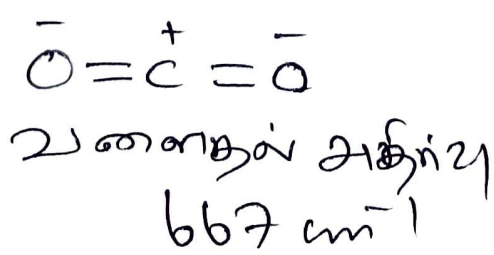 − + −
O = C = O
வளைதல் அதிர்வு
667 cm⁻¹